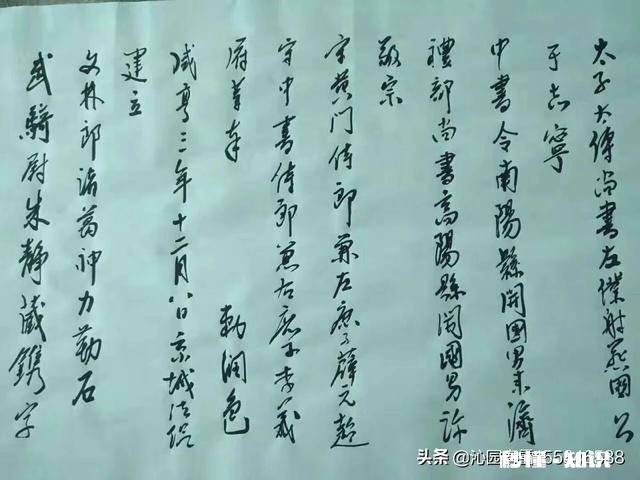 太子太傅尚書左僕射燕國公
于志寧
中書令南陽縣開國男来濟
禮部尚書高陽縣開國男許
敬宗
守黄门侍郎兼左庶子薛元超
守中書侍郎兼右庶子李義
府等奉 勑润色
咸亨三年十二月八日京城法侣
建立
文林郎诸葛神力勒石
武騎尉朱静藏鐫字
头条 @沁园